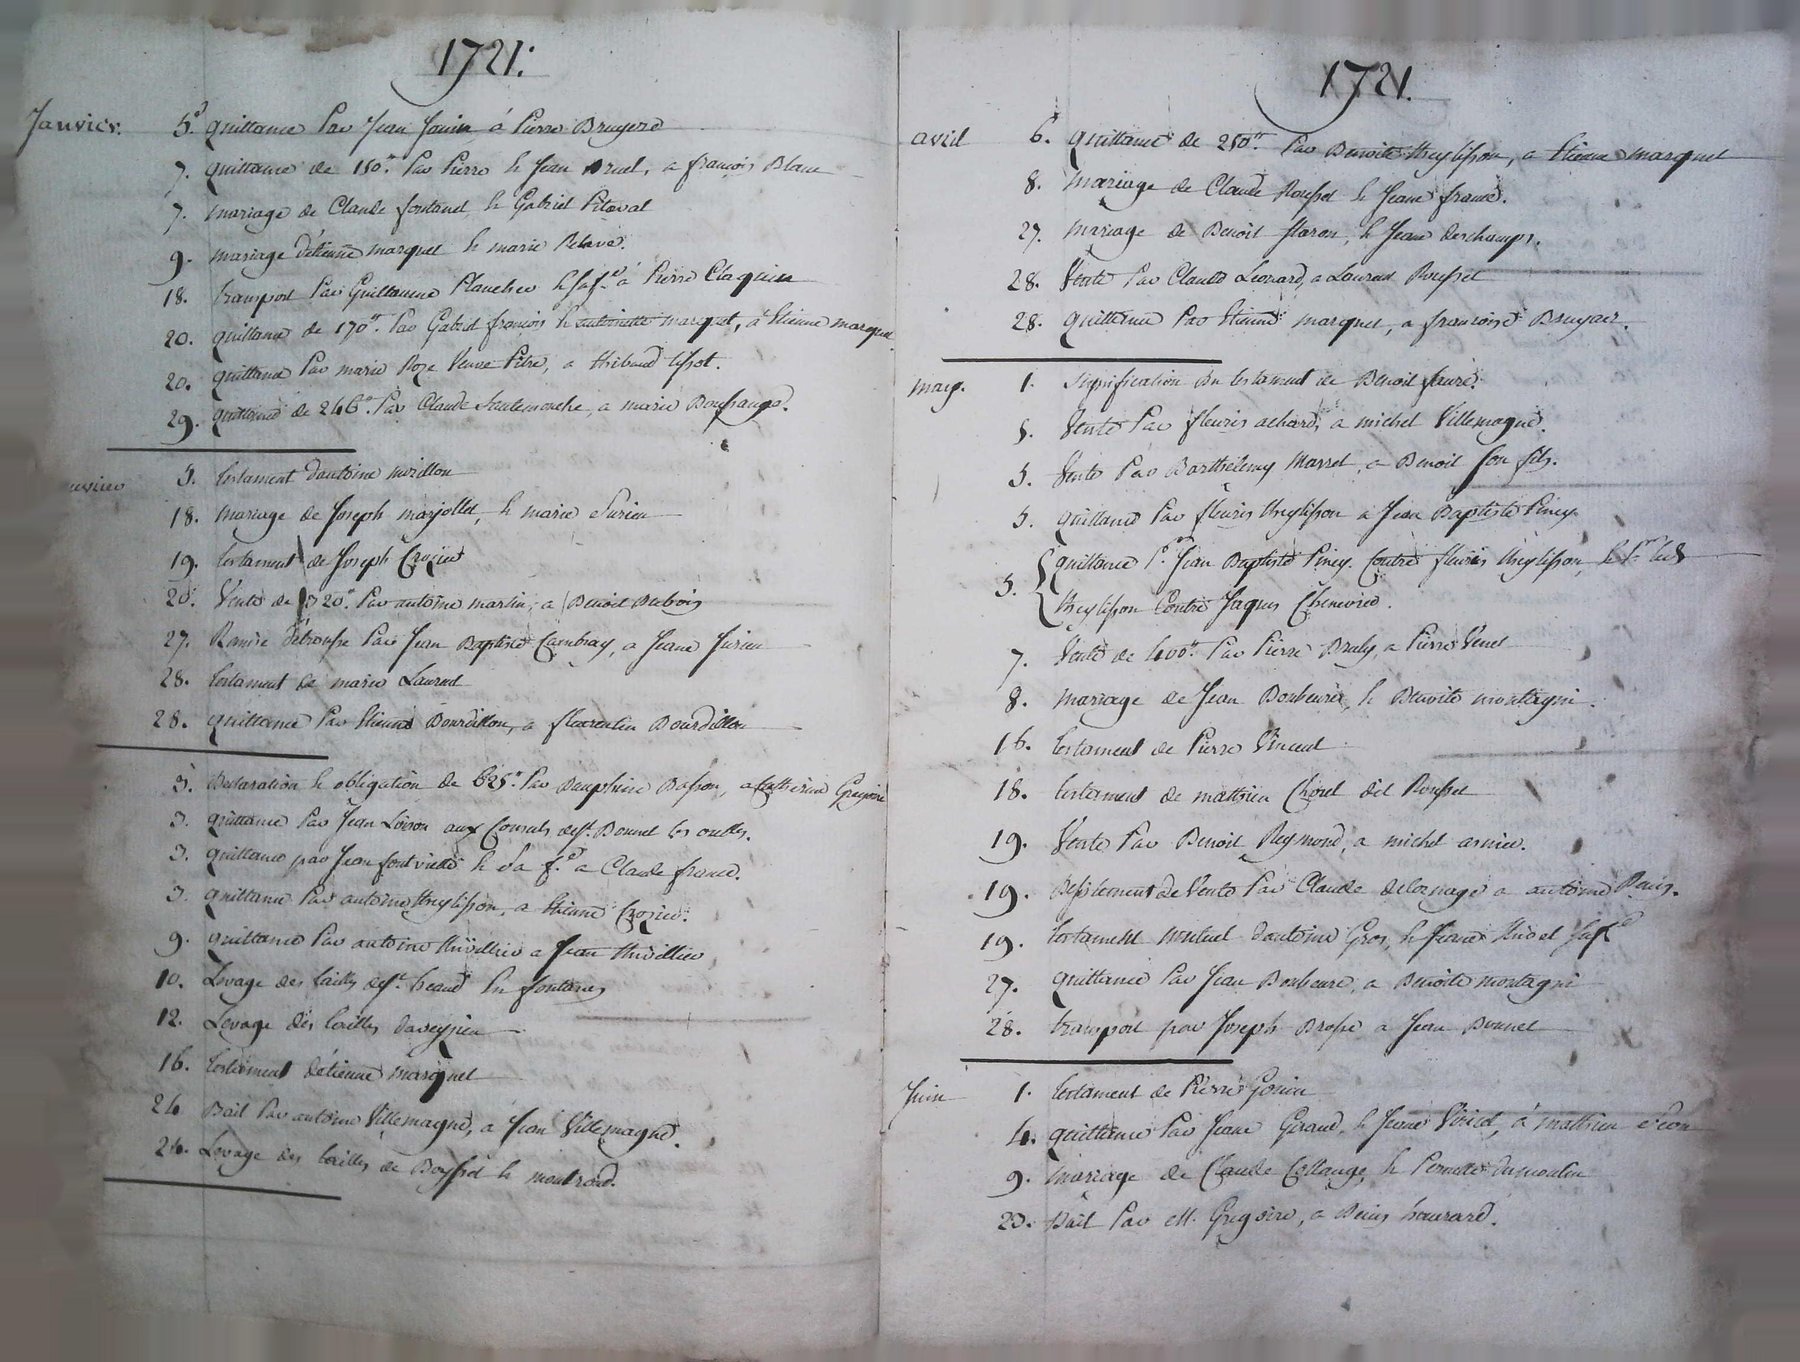 1721.
Janvier. 5. quittance Par Jean Jouin à Pierre Bruyere
7. quittance de 150.# Par Pierre & Jean ruel, a françois Blanc
7. mariage de Claude fontanel & Gabriel Pitaval
9. mariage d'étienne marquet & marie
18. transport Par Guillaume Plancher & sa f.e à Pierre Claquin
20. quittance de 170.# Par Gabriel françois & antoinette marquet, à Etienne marquet
20. quittance Par marie Roze Veuve Pitre, a thibaud
29. quittance de 246.# Par Claude a marie Boufrange.
3. testament dantoine
18. mariage de Joseph marjollet, & marie Surieu
19. testament de Joseph Crozier
20. Vente de 320.# Par antoine martin, a Benoit Dubois
27. Par Jean Baptiste Cambray, a Jeane Jurieu
28. testament de marie Laurent
28. quittance Par Etienne Bourdillon, a florentin Bourdillon
3. Declaration & obligation de 625.# Par Dauphine Basson, a Catherine Gregoire
3. quittance Par Jean Loison aux Consuls de St. Bonnet les oulles.
3. quittance par Jean fontvielle & Sa f.e a Claude france.
3. quittance Par antoine theylisson, a Etienne Crozier.
9. quittance Par antoine thivillier a Jean thivillier
10. Levage des tailles de St. heand en fontanes
12. Levage des tailles daveyzieu
16. testament détienne marquet
24 Bail Par antoine Villemagne, a Jean Villemagne.
24. Levage des tailles de Boysset & montrond.
1721.
avril 6. quittance de 250.# Par Benoite theylisson, a Etienne marquet
8. mariage de Claude Rousset & Jeane france.
27. mariage de Benoit staron, & Jeane deschamps.
28. Vente Par Claude Leonard, a Laurent Rousset
28. quittance Par Etienne marquet, a françoise Bruyair.
may. 1. signification du testament de Benoit faure.
5. Vente Par fleurie achard, a michel Villemagne.
5. Vente Par Barthelemy Masset, a Benoit son fils.
5. quittance Par fleurie theylisson a Jean Baptiste Piney
5. quittance P.r Jean Baptiste Piney. Contre fleurie theylisson, &
theylisson Contre Jaques Chenevier.
7. Vente de 400.# Par Pierre Bruly, a Pierre Venet
8. mariage de Jean Bonheure, & Benoite montagni.
16. testament de Pierre Vincent
18. testament de mathieu Chorel dit Rousset
19. Vente Par Benoit Reymond, a michel arnieu.
19. de Vente Par Claude delornage a antoine
19. testament mutuel dantoine Gros, & sa f.e
27. quittance Par Jean Bonheure, a Benoite montagni
28. transport par Joseph Brosse a Jean Brunet
Juin 1. testament de Pierre Gonin
4. quittance Par Jeane Giraud, & Jeane à mathieu
9. mariage de Claude Collange, & Pernette dumoulin
23. Bail Par M. Gregoire, a Denis